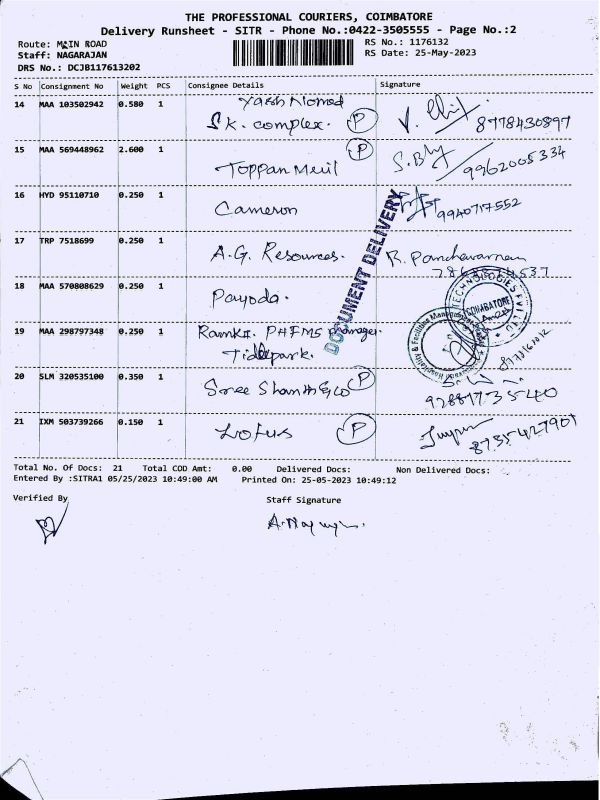 THE PROFESSIONAL COURIERS, COIMBATORE
Delivery Runsheet - SITR - Phone No.:0422-3505555 - Page No.:2
Route: MAIN ROAD RS No.: 1176132
Staff: NAGARAJAN RS Date: 25-May-2023
DRS No.: DCJB117613202
S No Consignment No Weight PCS Consignee Details Signature
14 MAA 103502942 0.580 1
S.K. complex. P 8778430897
15 MAA 569448962 2.600 1 P
Toppan Merill 9962005334
16 HYD 95110710 0.250 1
Cameron 9940717552
17 TRP 7518699 0.250 1
A.G. Resources. R. Panchavarnam
18 MAA 570808629 0.250 1
Payoda.
DOCUMENT DELIVERY
TECHNOLOGIES PVT LTD
COIMBATORE
19 MAA 298797348 0.250 1 PHFMS manager.
Tidelpark.
20 SLM 320535100 0.350 1
Sree Shanthi & Co P
21 IXM 503739266 0.150 1
Lotus P 8735427901
Total No. Of Docs: 21 Total COD Amt: 0.00 Delivered Docs: Non Delivered Docs:
Entered By :SITRA1 05/25/2023 10:49:00 AM Printed On: 25-05-2023 10:49:12
Verified By Staff Signature